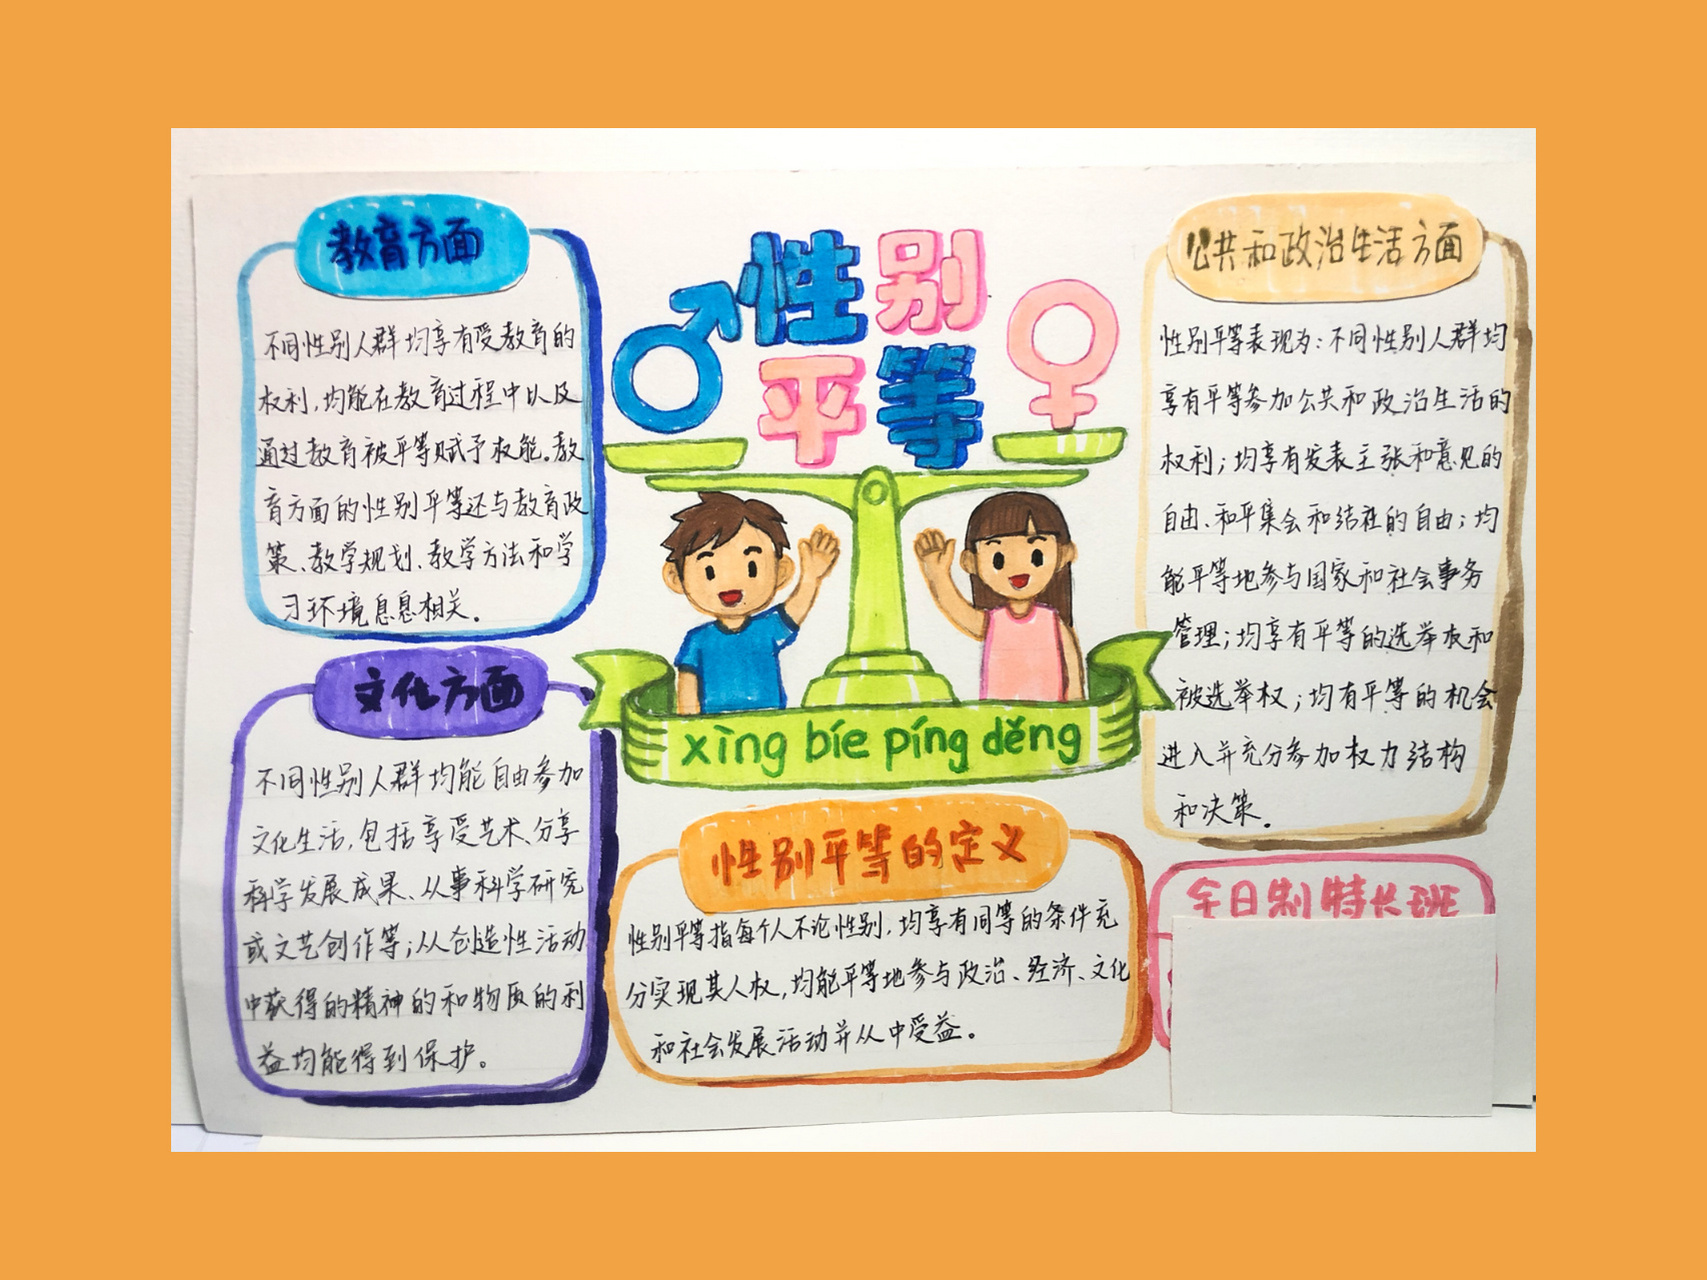 教育方面
不同性别人群均享有受教育的
权利,均能在教育过程中以及
通过教育被平等赋予权能。教
育方面的性别平等还与教育政
策、教学规划、教学方法和学
习环境息息相关。
文化方面
不同性别人群均能自由参加
文化生活,包括享受艺术、分享
科学发展成果、从事科学研究
或文艺创作等;从创造性活动
中获得的精神的和物质的利
益均能得到保护。
性别
平等
xìng bíe píng děng
性别平等的定义
性别平等指每个人不论性别,均享有同等的条件充
分实现其人权,均能平等地参与政治、经济、文化
和社会发展活动并从中受益。
公共和政治生活方面
性别平等表现为:不同性别人群均
享有平等参加公共和政治生活的
权利;均享有发表主张和意见的
自由、和平集会和结社的自由;均
能平等地参与国家和社会事务
管理;均享有平等的选举权和
被选举权;均有平等的机会
进入并充分参加权力结构
和决策。
全日制特长班